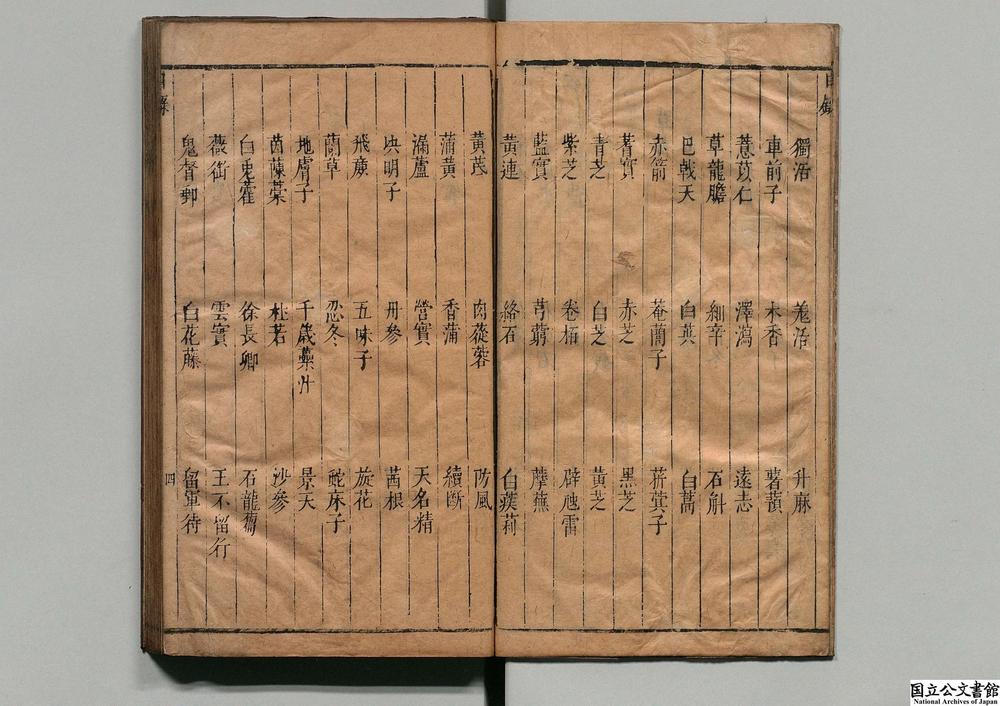 目錄
獨活 羗活 升麻
車前子 木香 薯蕷
薏苡仁 澤瀉 遠志
草龍膽 細辛 石斛
巴戟天 白英 白蒿
赤箭 菴䕡子 菥蓂子
蓍實 赤芝 黑芝
青芝 白芝 黃芝
紫芝 卷栢 辟虺雷
藍實 芎藭 蘼蕪
黃連 絡石 白蒺莉
黃芪 肉蓯蓉 防風
蒲黃 香蒲 續断
漏蘆 營實 天名精
决明子 丹參 茜根
飛廉 五味子 旋花
蘭草 忍冬 蛇床子
地膚子 千歲虆汁 景天
茵蔯蒿 杜若 沙參
白兎藿 徐長卿 石龍芻
薇銜 雲實 王不留行
鬼督郵 白花藤 留軍待
目錄
四
国立公文書館
National Archives of Japan